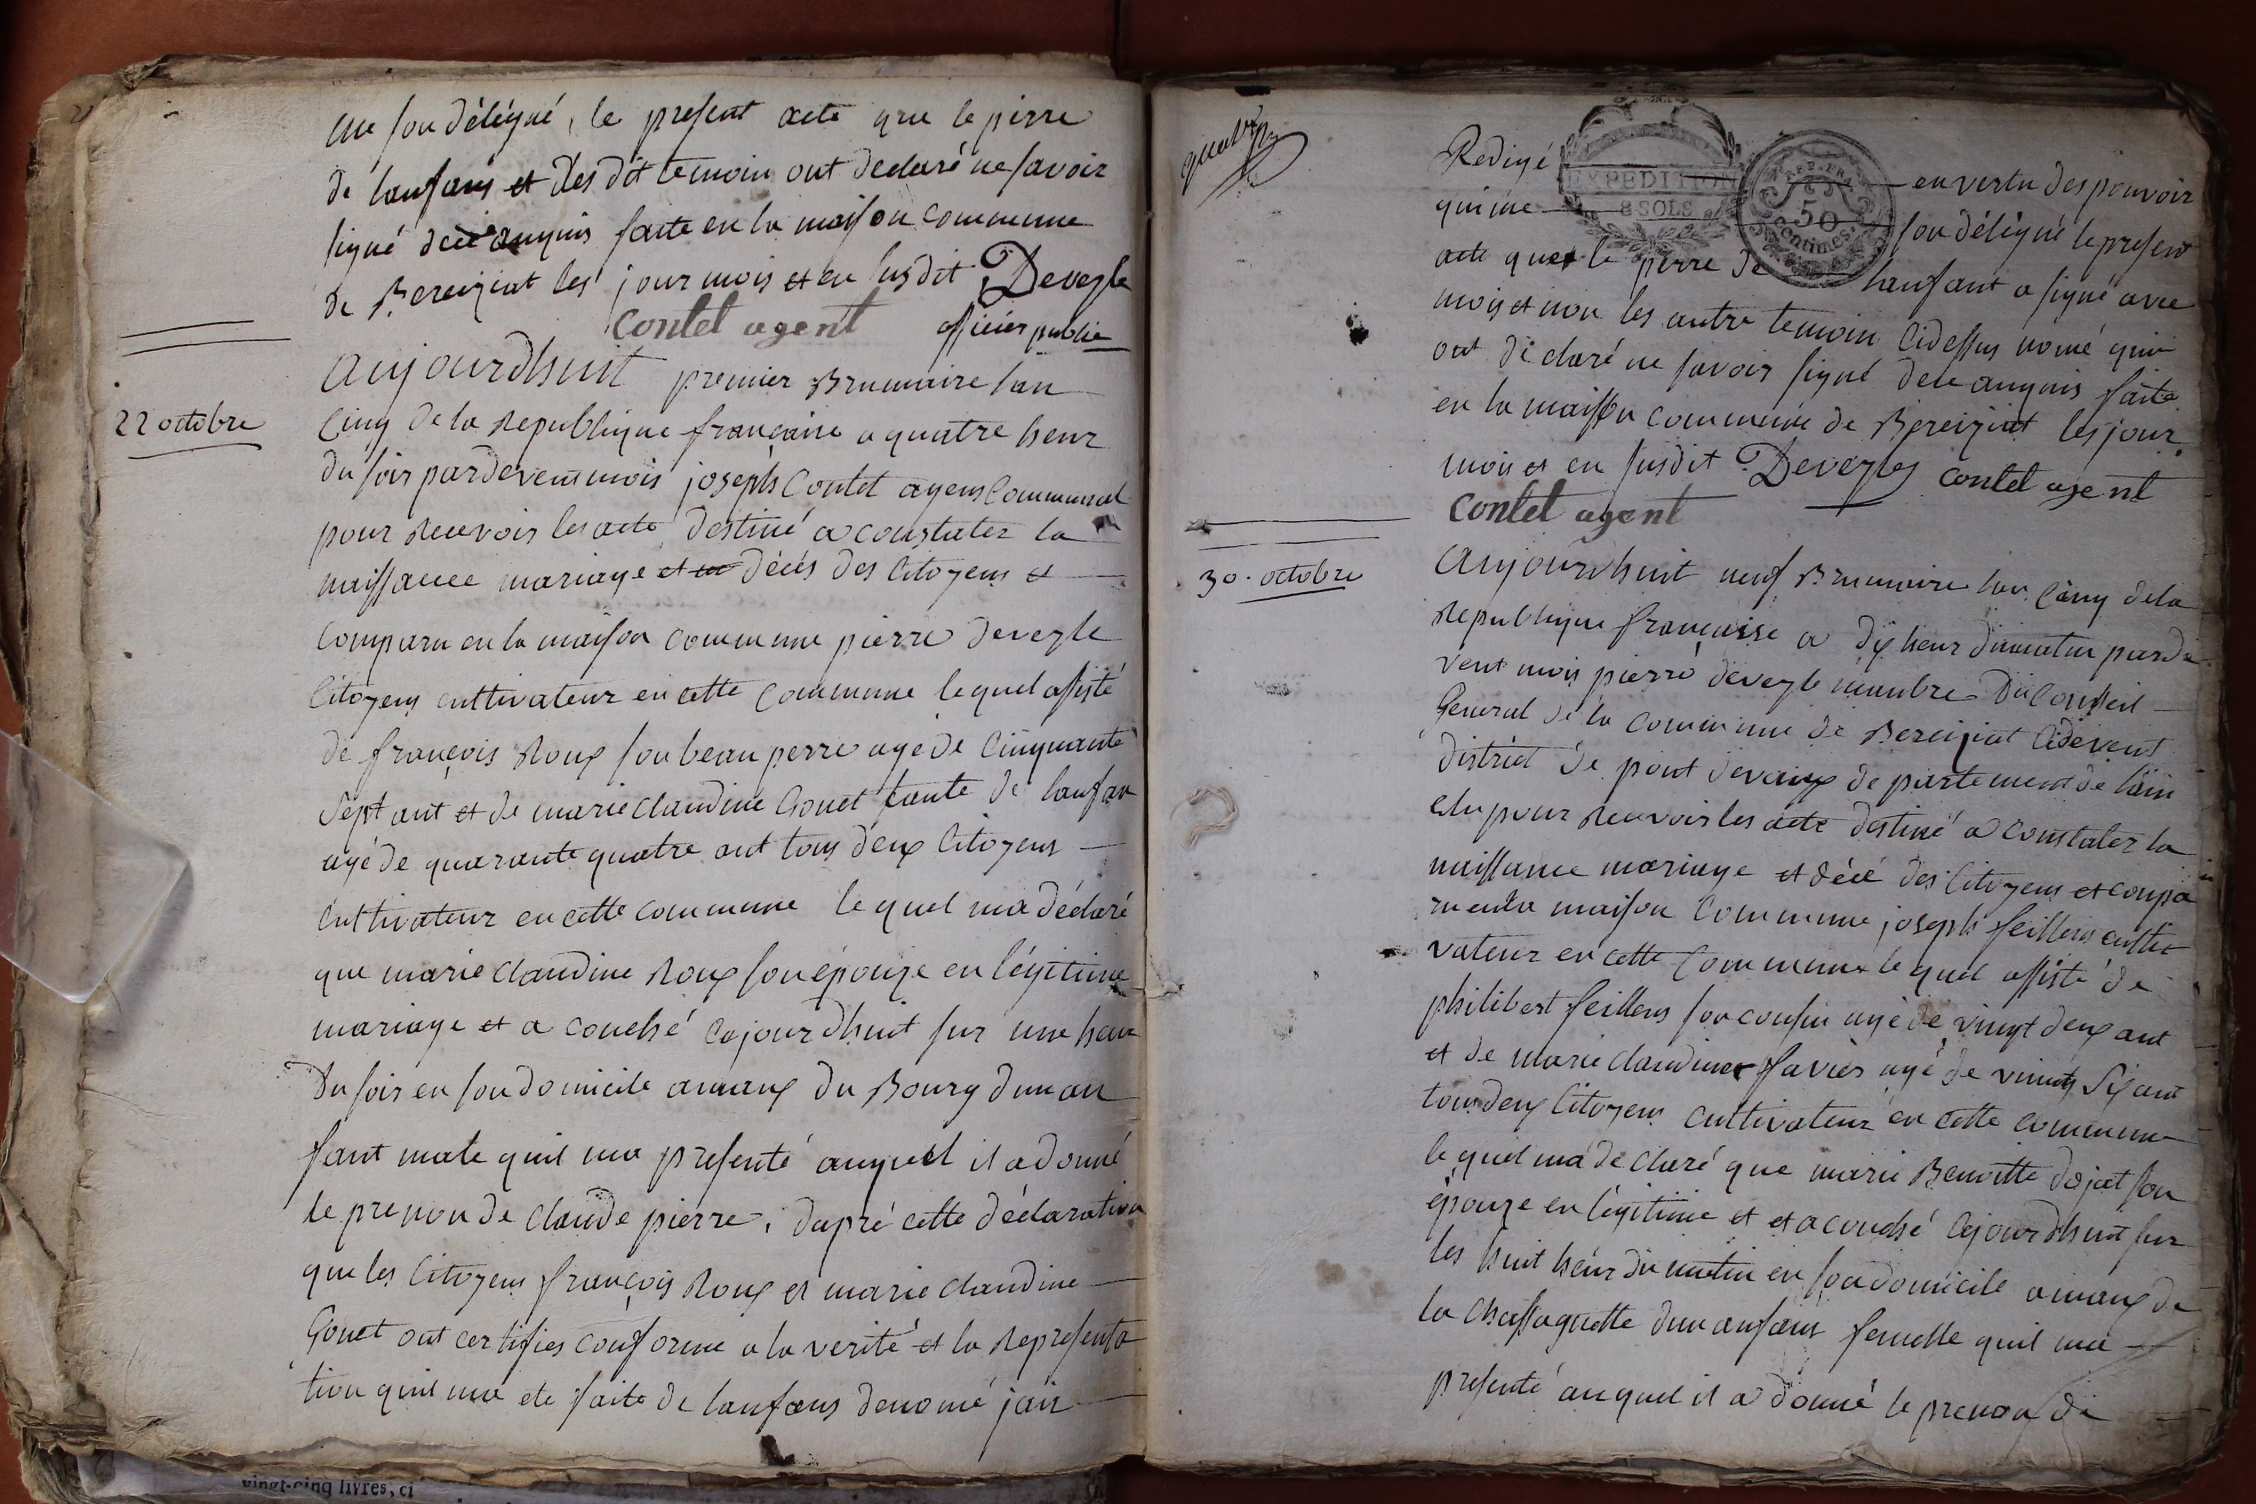 me son délégué, le present acte que le pierre
de lanfans et des dit temoin ont declaré ne savoir
signé de ce anquis faite en la maison commune
de Bereiziat les jour mois et en susdit Deveyle
Contet agent officier public
22 octobre
aujourdhuit premier Brumaire lan
Cinq de la Republique francaise a quatre heur
du soir pardevent mois joseph Contet agens Communal
pour Recevois les acte destiné a constater la
naissance mariage et décés des Citoyens et
Comparu en la maison commune pierre deveyle
Citoyens cultivateur en cette Commune lequel assisté
de françois Roux son beau perre age de Cinquante
Sept ant et de marie claudine Gouet tante de lanfan
agé de quarante quatre ant tous deux Citoyens
Cultivateur en cette commune le quel ma déclaré
que marie claudine Roux son épouze en légitime
mariage et a couché cejourdhuit sur une heur
Du soir en son domicile amaux du Bourg dun an
fant male quil ma presenté auquel il a donné
le prenon de claude pierre, dapré cette déclaration
que les Citoyens françois Roux et marie claudine
Gouet ont certifies conforme a la verité et la Representa
tion quil ma eté faite de lanfans denomé jaii
Redigé en vertu des pouvoir
qui me son délégué le present
acte que le pierre de lanfant a signé avec
mois et non les autre temoin Cidessus nomé qui
ont déclaré ne savoir signé de ce anquis faite
en la maison commune de Bereiziat les jour
mois et en susdit Deveyle contet agent
Contet agent
EXPEDITION
8 SOLS
REP. FRA.
50
Centimes.
30. octobre
aujourdhuit neuf Brumaire lan Cinq dela
Republique francaise a dix heur dumatin parde
vent mois pierre deveyle membre Du Conseil
General de la commune de Bereiziat Cidevent
district de pont devaux departement de lain
elu pour Recevois les acte destiné a constater la
naissance mariage et décé des Citoyens et compa
ru en la maison Commune joseph feillens culti
vateur en cette Commune le quel assisté de
philibert feillens son cousin agé de vingt deux ant
et de marie claudine favier agé de vingt Six ant
tous deux Citoyens cultivateur en cette commune
le quel ma declaré que marie Benoitte dojat son
épouze en légitime et et a couché cejourdhuit sur
les huit heur du matin en son domicile amaux de
la Chassagnette dun anfans femelle quil ma
presenté auquel il a donné le prenon de
vingt-cinq livres, ci